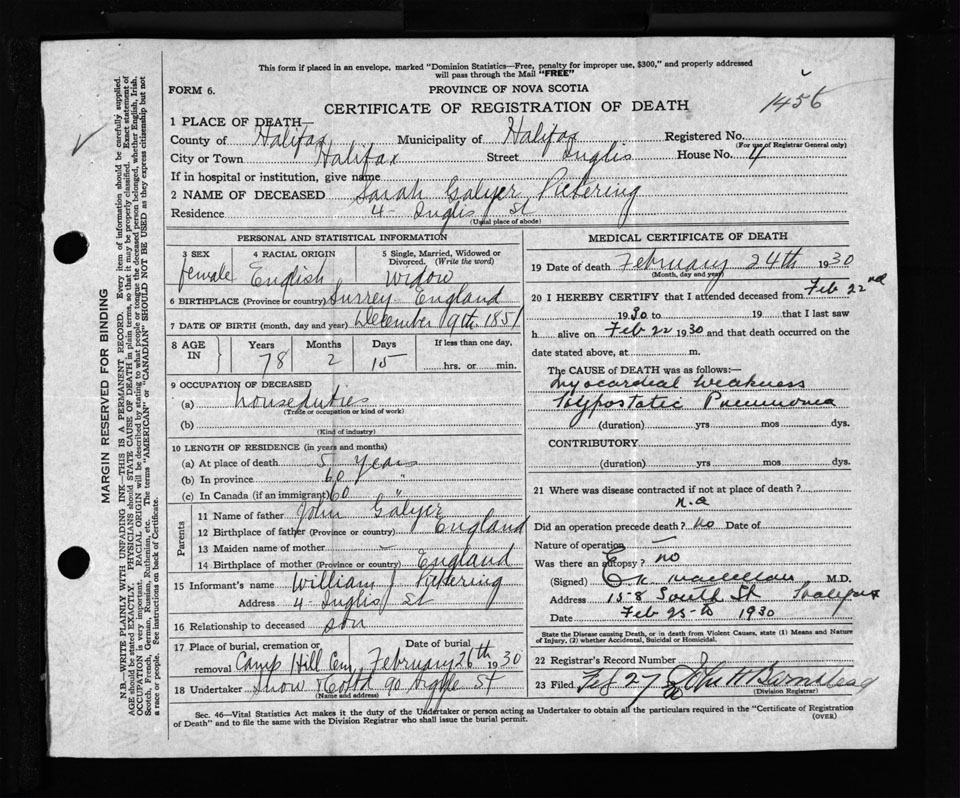 This form if placed in an envelope, marked "Dominion Statistics—Free, penalty for improper use, $300," and properly addressed
will pass through the Mail "FREE"
FORM 6.
PROVINCE OF NOVA SCOTIA
CERTIFICATE OF REGISTRATION OF DEATH
1456
1 PLACE OF DEATH—
County of Halifax Municipality of Halifax Registered No.
(For use of Registrar General only)
City or Town Halifax Street Inglis House No. 4
If in hospital or institution, give name
2 NAME OF DECEASED Sarah Galyer Pickering
Residence 4 - Inglis St
(Usual place of abode)
PERSONAL AND STATISTICAL INFORMATION
3 SEX
female
4 RACIAL ORIGIN
English
5 Single, Married, Widowed or
Divorced. (Write the word)
Widow
6 BIRTHPLACE (Province or country) Surrey England
7 DATE OF BIRTH (month, day and year) December 9th 1851
8 AGE
IN
Years
78
Months
2
Days
15
If less than one day,
hrs. or min.
9 OCCUPATION OF DECEASED
(a) houseduties
(Trade or occupation or kind of work)
(b)
(Kind of industry)
10 LENGTH OF RESIDENCE (in years and months)
(a) At place of death 5 years
(b) In province 60 "
(c) In Canada (if an immigrant) 60 "
Parents
11 Name of father John Galyer
12 Birthplace of father (Province or country) England
13 Maiden name of mother —
14 Birthplace of mother (Province or country) England
15 Informant's name William J Pickering
Address 4 - Inglis St
16 Relationship to deceased son
17 Place of burial, cremation or
removal Camp Hill Cem
Date of burial
February 26th 1930
18 Undertaker Snow & Co Ltd 90 Argyle St
(Name and address)
MEDICAL CERTIFICATE OF DEATH
19 Date of death February 24th 1930
(Month, day and year)
20 I HEREBY CERTIFY that I attended deceased from Feb 22nd
1930 to 19 that I last saw
h alive on Feb 22 1930 and that death occurred on the
date stated above, at m.
The CAUSE of DEATH was as follows:—
Myocardial Weakness
Hypostatic Pneumonia
(duration) yrs mos dys.
CONTRIBUTORY
(duration) yrs mos dys.
21 Where was disease contracted if not at place of death?
n.a
Did an operation precede death? no Date of
Nature of operation —
Was there an autopsy? no
(Signed) M.D.
Address 158 South St Halifax
Date Feb 25-th 1930
State the Disease causing Death, or in death from Violent Causes, state (1) Means and Nature
of Injury, (2) whether Accidental, Suicidal or Homicidal.
22 Registrar's Record Number
23 Filed Feb 27
(Division Registrar)
Sec. 46—Vital Statistics Act makes it the duty of the Undertaker or person acting as Undertaker to obtain all the particulars required in the "Certificate of Registration
of Death" and to file the same with the Division Registrar who shall issue the burial permit.
(OVER)
MARGIN RESERVED FOR BINDING
N.B.—WRITE PLAINLY WITH UNFADING INK—THIS IS A PERMANENT RECORD. Every item of information should be carefully supplied.
AGE should be stated EXACTLY. PHYSICIANS should STATE CAUSE OF DEATH in plain terms, so that it may be properly classified. Exact statement of
OCCUPATION is very important. RACIAL ORIGIN will be described by stating to what people or tongue the deceased person belonged, whether English, Irish,
Scotch, French, German, Russian, Ruthenian, etc. The terms "AMERICAN" or "CANADIAN" SHOULD NOT BE USED as they express citizenship but not
a race or people. See instructions on back of Certificate.